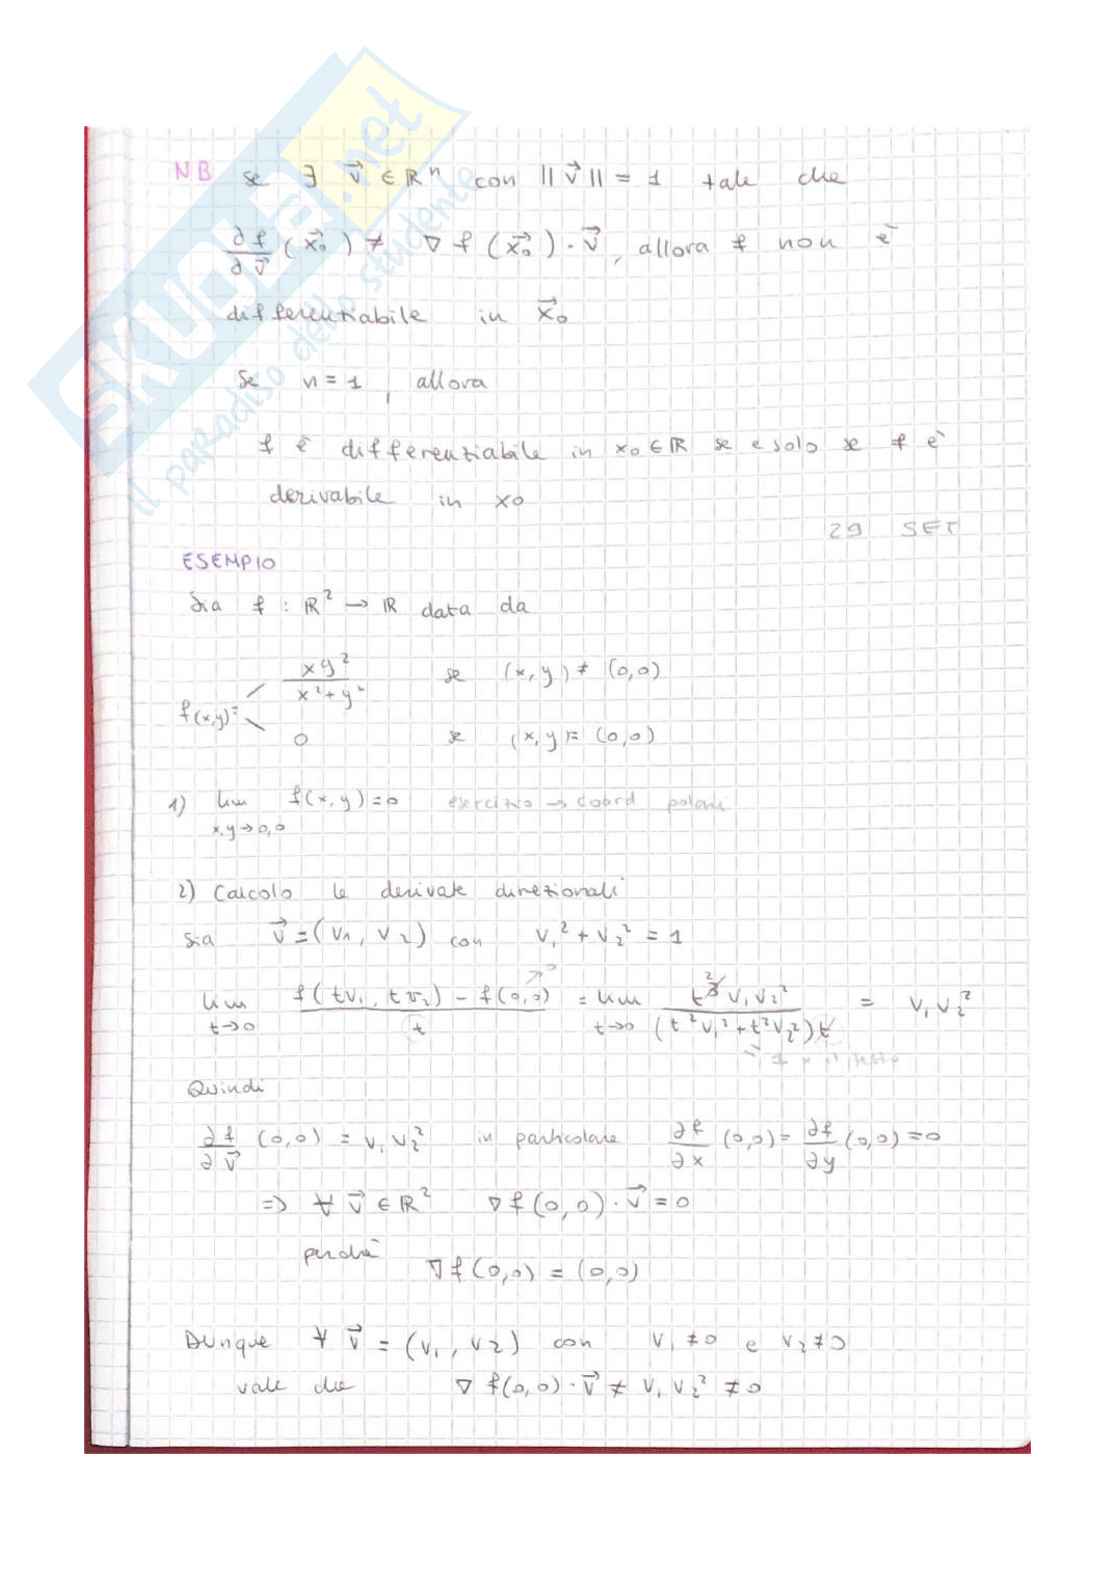 SKUOLA.net
il paradiso dello studente
NB se ∃ v⃗ ∈ ℝⁿ con ||v⃗|| = 1 tale che
∂f/∂v⃗ (x⃗₀) ≠ ∇f(x⃗₀)·v⃗, allora f non è
differenziabile in x⃗₀
Se n=1, allora
f è differenziabile in x₀∈ℝ se e solo se f è
derivabile in x₀
29 SET
ESEMPIO
Sia f : ℝ² → ℝ data da
xy²/(x²+y²) se (x,y) ≠ (0,0)
f(x,y)=
0 se (x,y)= (0,0)
1) lim f(x,y)=0 esercizio → coord polari
x,y→0,0
2) Calcolo le derivate direzionali
Sia v⃗=(v₁, v₂) con v₁²+v₂²=1
lim t→0 (f(tv₁, tv₂) - f(0,0))/t = lim t→0 t³v₁v₂²/((t²v₁²+t²v₂²)t) = v₁v₂²
Quindi
∂f/∂v⃗ (0,0) = v₁v₂² in particolare ∂f/∂x (0,0)= ∂f/∂y (0,0)=0
=> ∀ v⃗ ∈ ℝ² ∇f(0,0)·v⃗=0
perché
∇f(0,0) = (0,0)
Dunque ∀ v⃗ = (v₁, v₂) con v₁≠0 e v₂≠0
vale che ∇f(0,0)·v⃗ ≠ v₁v₂² ≠0